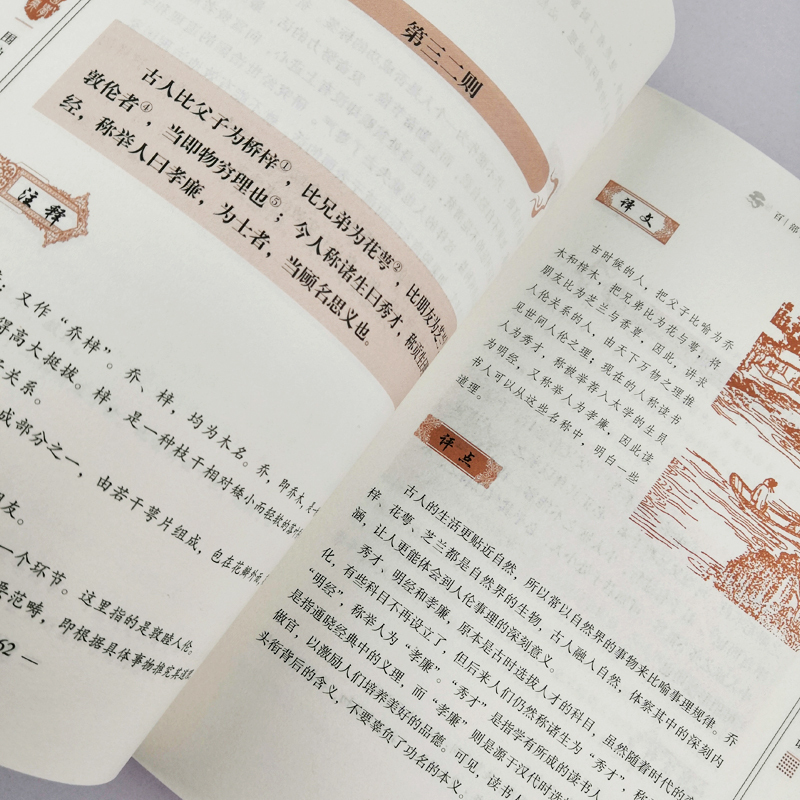 第三二则
古人比父子为桥梓①，比兄弟为花萼②，比朋友为芝
敦伦者④，当即物穷理也⑤；今人称诸生曰秀才，称贡生
经，称举人曰孝廉，为士者，当顾名思义也。
注释
；又作“乔梓”。乔、梓，均为木名。乔，即乔木，
得高大挺拔。梓，是一种枝干相对矮小而轻软的落
关系。
成部分之一，由若干萼片组成，包在花瓣外
朋友。
一个环节。这里指的是敦睦人伦。
要范畴，即根据具体事物推究其道
62
百部
译文
古时候的人，把父子比喻为乔
木和梓木，把兄弟比为花与萼，将
朋友比为芝兰与香草，因此，讲求
人伦关系的人，由天下万物之理推
见世间人伦之理；现在的人称读书
人为秀才，称被举荐入太学的生员
为明经，又称举人为孝廉，因此读
书人可以从这些名称中，明白一些
道理。
评点
古人的生活更贴近自然，所以常以自然界的事物来比喻事理规律。乔
梓、花萼、芝兰都是自然界的生物，古人融入自然，体察其中的深刻内
涵，让人更能体会到人伦事理的深刻意义。
秀才、明经和孝廉，原本是古时选拔人才的科目，虽然随着时代的
化，有些科目不再设立了，但后来人们仍然称诸生为“秀才”，称
“明经”，称举人为“孝廉”。“秀才”是指学有所成的读书人
是指通晓经典中的义理，而“孝廉”则是源于汉代时选
做官，以激励人们培养美好的品德。可见，读书人
头衔背后的含义，不要辜负了功名的本义。